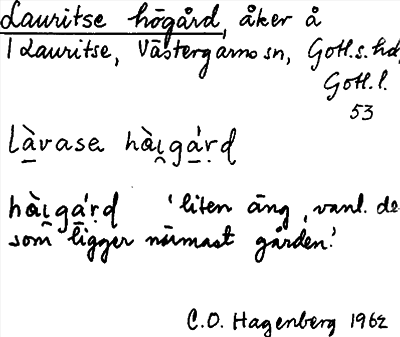 Lauritse högård, åker å
1 Lauritse, Västergarns sn, Gotl.s. hd,
Gotl.l.
53
là̱vase hàι̯gá̱ṛd
hàι̯gá̱ṛd 'liten äng, vanl. de
som ligger närmast gården.'
C.O. Hagenberg 1962